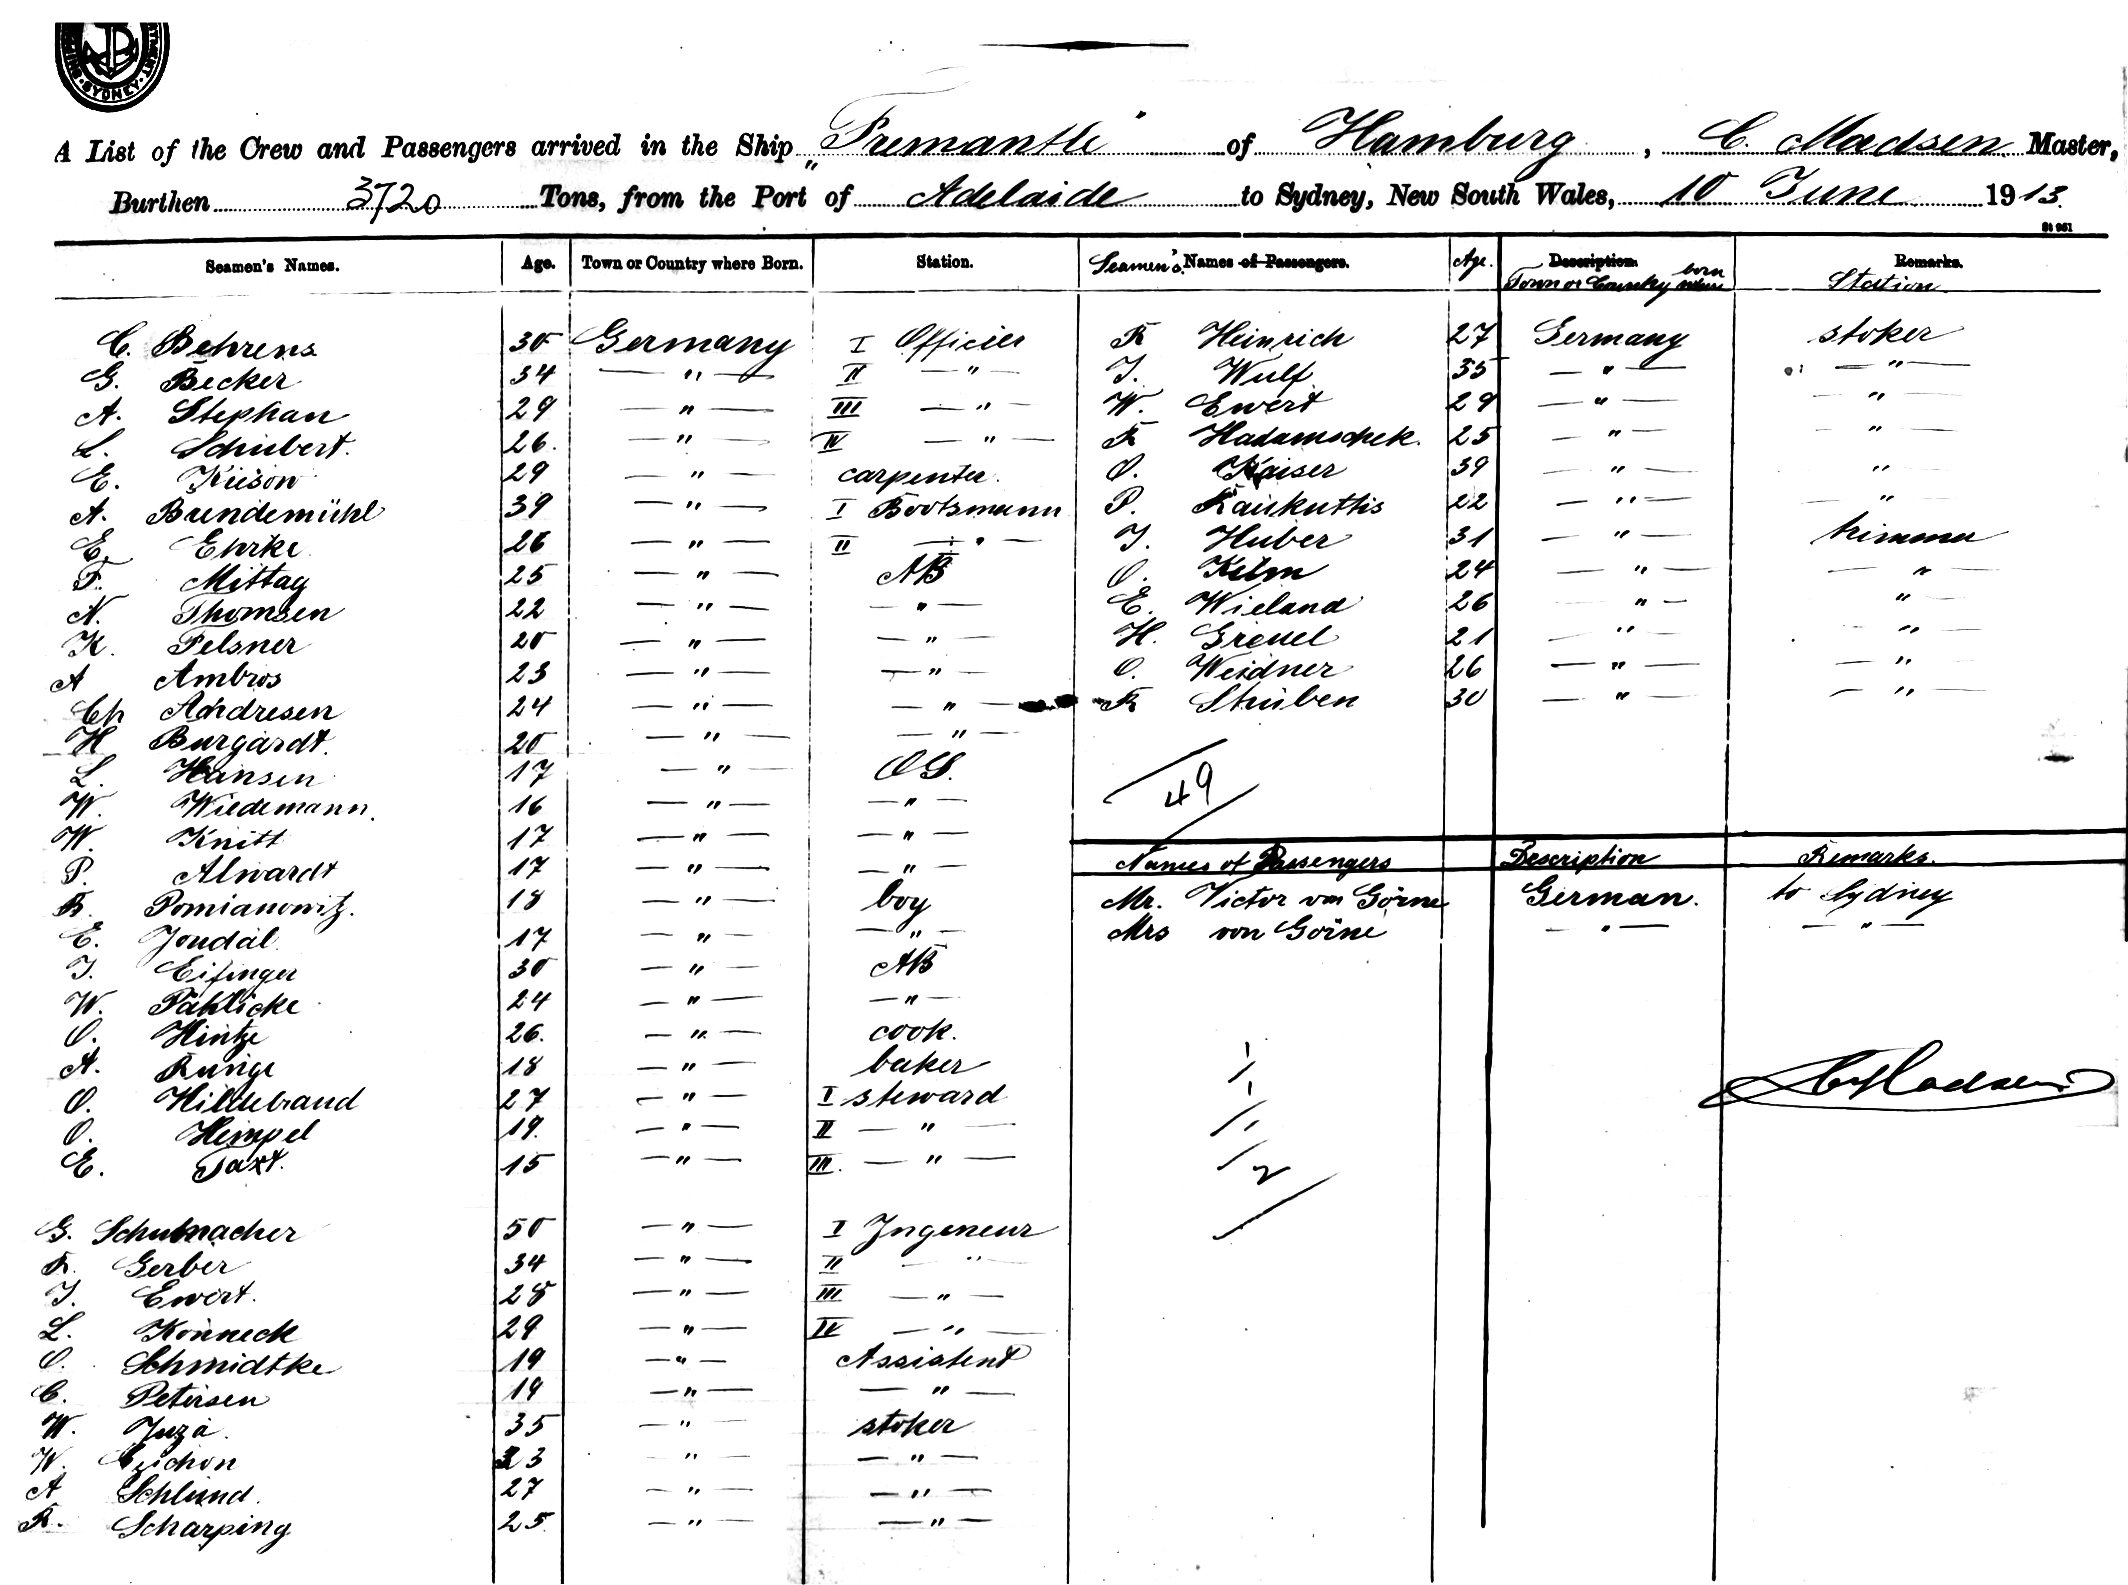 SYDNEY
A List of the Crew and Passengers arrived in the Ship „Fremantle" of Hamburg, C. Madsen Master,
Burthen 3720 Tons, from the Port of Adelaide to Sydney, New South Wales, 10 June 1913.
St 961
Seamen's Names. Age. Town or Country where Born. Station.
C. Behrens 30 Germany I Officier
G. Becker 34 — " — II — " —
A. Stephan 29 — " — III — " —
L. Schubert. 26. — " — IV — " —
E. 29 — " — carpenter.
A. Bundemühl 39 — " — I Bootsmann
E. Ehrke 26 — " — II — " —
F. Mittag 25 — " — AB
N. Thomsen 22 — " — — " —
K. Felsner 20 — " — — " —
A Ambros 23 — " — — " —
Ch Andresen 24 — " — — " —
H Burgardt. 20 — " — — " —
L. Hansen 17 — " — OS.
W. Wiedemann. 16 — " — — " —
W. Knitt 17 — " — — " —
P. Alwardt 17 — " — — " —
R. Pomianowitz. 18 — " — boy
E. Joudal. 17 — " — — " —
J. Eifinger 30 — " — AB
W. Pahlicke 24 — " — — " —
O. Hintze 26. — " — cook.
A. Runge 18 — " — baker
O. Hillebrand 27 — " — I steward
O. Hempel 19. — " — II — " —
E. Taxt. 15 — " — III. — " —
G. Schumacher 50 — " — I Ingeneur
R. Gerber 34 — " — II — " —
J. Ewert. 28 — " — III — " —
L. Könneck 29 — " — IV — " —
O. Schmidtke 19 — " — Assistent
C. Petersen 19 — " — — " —
W. Juza. 35 — " stoker
W. 23 — " — — " —
A Schlünd. 27 — " — — " —
R. Scharping 25 — " — — " —
Seamen's Names of Passengers. Age. Description. Town or Country where born Remarks. Station
R Heinrich 27 Germany stoker
J. Wulf 35 — " — — " —
W. Ewert 29 — " — — " —
R Hadamschek. 25 — " — — " —
O. Kaiser 39 — " — "
P. Raukuttis 22 — " — — " —
J. Huber 31 — " — trimmer
O. Kilm 24 — " — — " —
E. Wieland 26 — " — "
H. Greuel 21 — " — — " —
O. Weidner 26 — " — — " —
R Stüben 30 — " — — " —
49
Names of Passengers Description Remarks.
Mr. Victor von Görne German. to Sydney
Mrs von Görne — " — — " —
1
1
2
C. Madsen